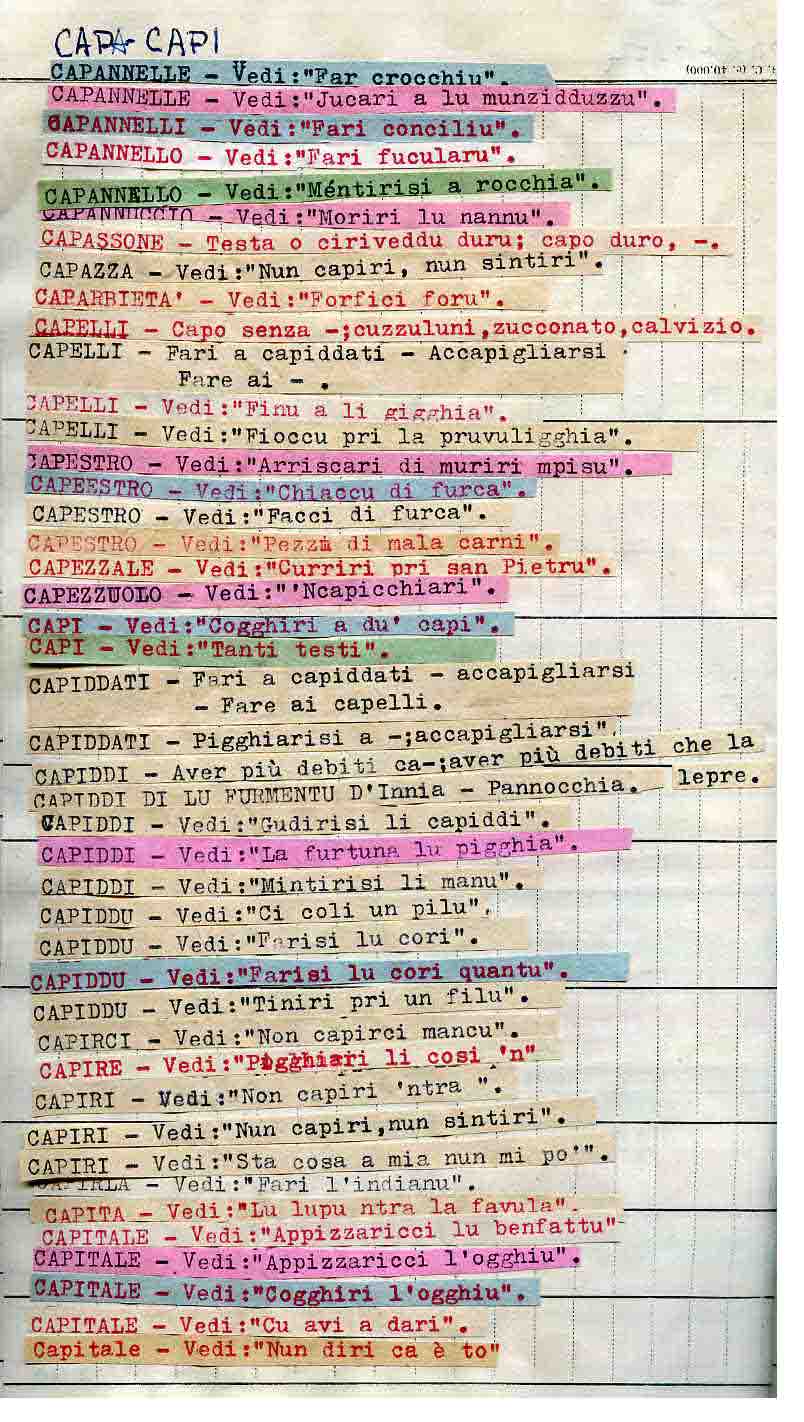 CAPA- CAPI
CAPANNELLE - Vedi:"Far crocchiu".
CAPANNELLE - Vedi:"Jucari a lu munzidduzzu".
CAPANNELLI - Vedi:"Fari conciliu".
CAPANNELLO - Vedi:"Fari fucularu".
CAPANNELLO - Vedi:"Méntirisi a rocchia".
CAPANNUCCIO - Vedi:"Moriri lu nannu".
CAPASSONE - Testa o ciriveddu duru; capo duro, -.
CAPAZZA - Vedi:"Nun capiri, nun sintiri".
CAPARBIETA' - Vedi:"Forfici foru".
CAPELLI - Capo senza -;cuzzuluni,zucconato,calvizio.
CAPELLI - Fari a capiddati - Accapigliarsi .
Fare ai - .
CAPELLI - Vedi:"Finu a li gigghia".
CAPELLI - Vedi:"Fioccu pri la pruvuligghia".
CAPESTRO - Vedi:"Arriscari di muriri mpisu".
CAPEESTRO - Vedi:"Chiaccu di furca".
CAPESTRO - Vedi:"Facci di furca".
CAPESTRO - Vedi:"Pezzu di mala carni".
CAPEZZALE - Vedi:"Curriri pri san Pietru".
CAPEZZUOLO - Vedi:"'Ncapicchiari".
CAPI - Vedi:"Cogghiri a du' capi".
CAPI - Vedi:"Tanti testi".
CAPIDDATI - Fari a capiddati - accapigliarsi
- Fare ai capelli.
CAPIDDATI - Pigghiarisi a -;accapigliarsi".
CAPIDDI - Aver più debiti ca-;aver più debiti che la
lepre.
CAPIDDI DI LU FURMENTU D'Innia - Pannocchia.
CAPIDDI - Vedi:"Gudirisi li capiddi".
CAPIDDI - Vedi:"La furtuna lu pigghia".
CAPIDDI - Vedi:"Mintirisi li manu".
CAPIDDU - Vedi:"Ci coli un pilu".
CAPIDDU - Vedi:"Farisi lu cori".
CAPIDDU - Vedi:"Farisi lu cori quantu".
CAPIDDU - Vedi:"Tiniri pri un filu".
CAPIRCI - Vedi:"Non capirci mancu".
CAPIRE - Vedi:"Pigghiari li cosi 'n"
CAPIRI - Vedi:"Non capiri 'ntra ".
CAPIRI - Vedi:"Nun capiri,nun sintiri".
CAPIRI - Vedi:"Sta cosa a mia nun mi po'".
CAPIRLA - Vedi:"Fari l'indianu".
CAPITA - Vedi:"Lu lupu ntra la favula".
CAPITALE - Vedi:"Appizzaricci lu benfattu"
CAPITALE - Vedi:"Appizzaricci l'ogghiu".
CAPITALE - Vedi:"Cogghiri l'ogghiu".
CAPITALE - Vedi:"Cu avi a dari".
Capitale - Vedi:"Nun diri ca è to"